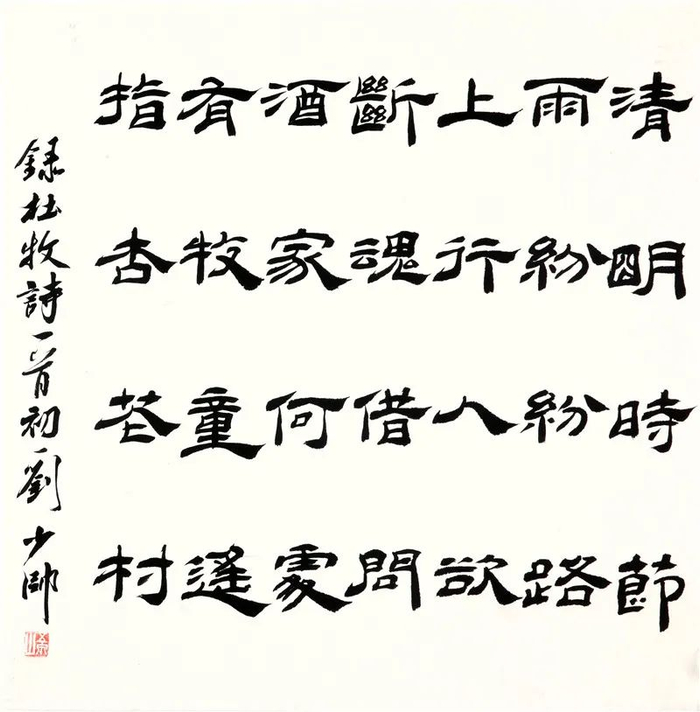 清明時節
雨紛紛路
上行人欲
斷魂借問
酒家何處
有牧童遙
指杏花村
録杜牧詩一首初一劉少帥